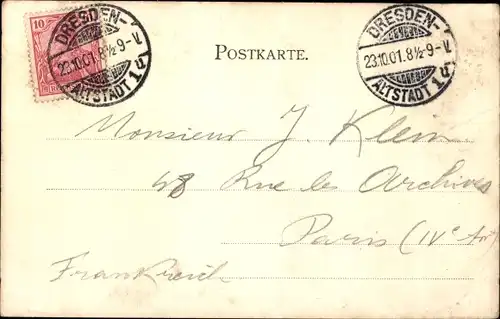 10
DRESDEN-
23.10.01.8½-9-V.
ALTSTADT 1d.
DRESDEN-
23.10.01.8½-9-V.
ALTSTADT 1d.
POSTKARTE.
Monsieur J. Klem
48 Rue les Archives
Paris (IVe Ar)
Frankreich